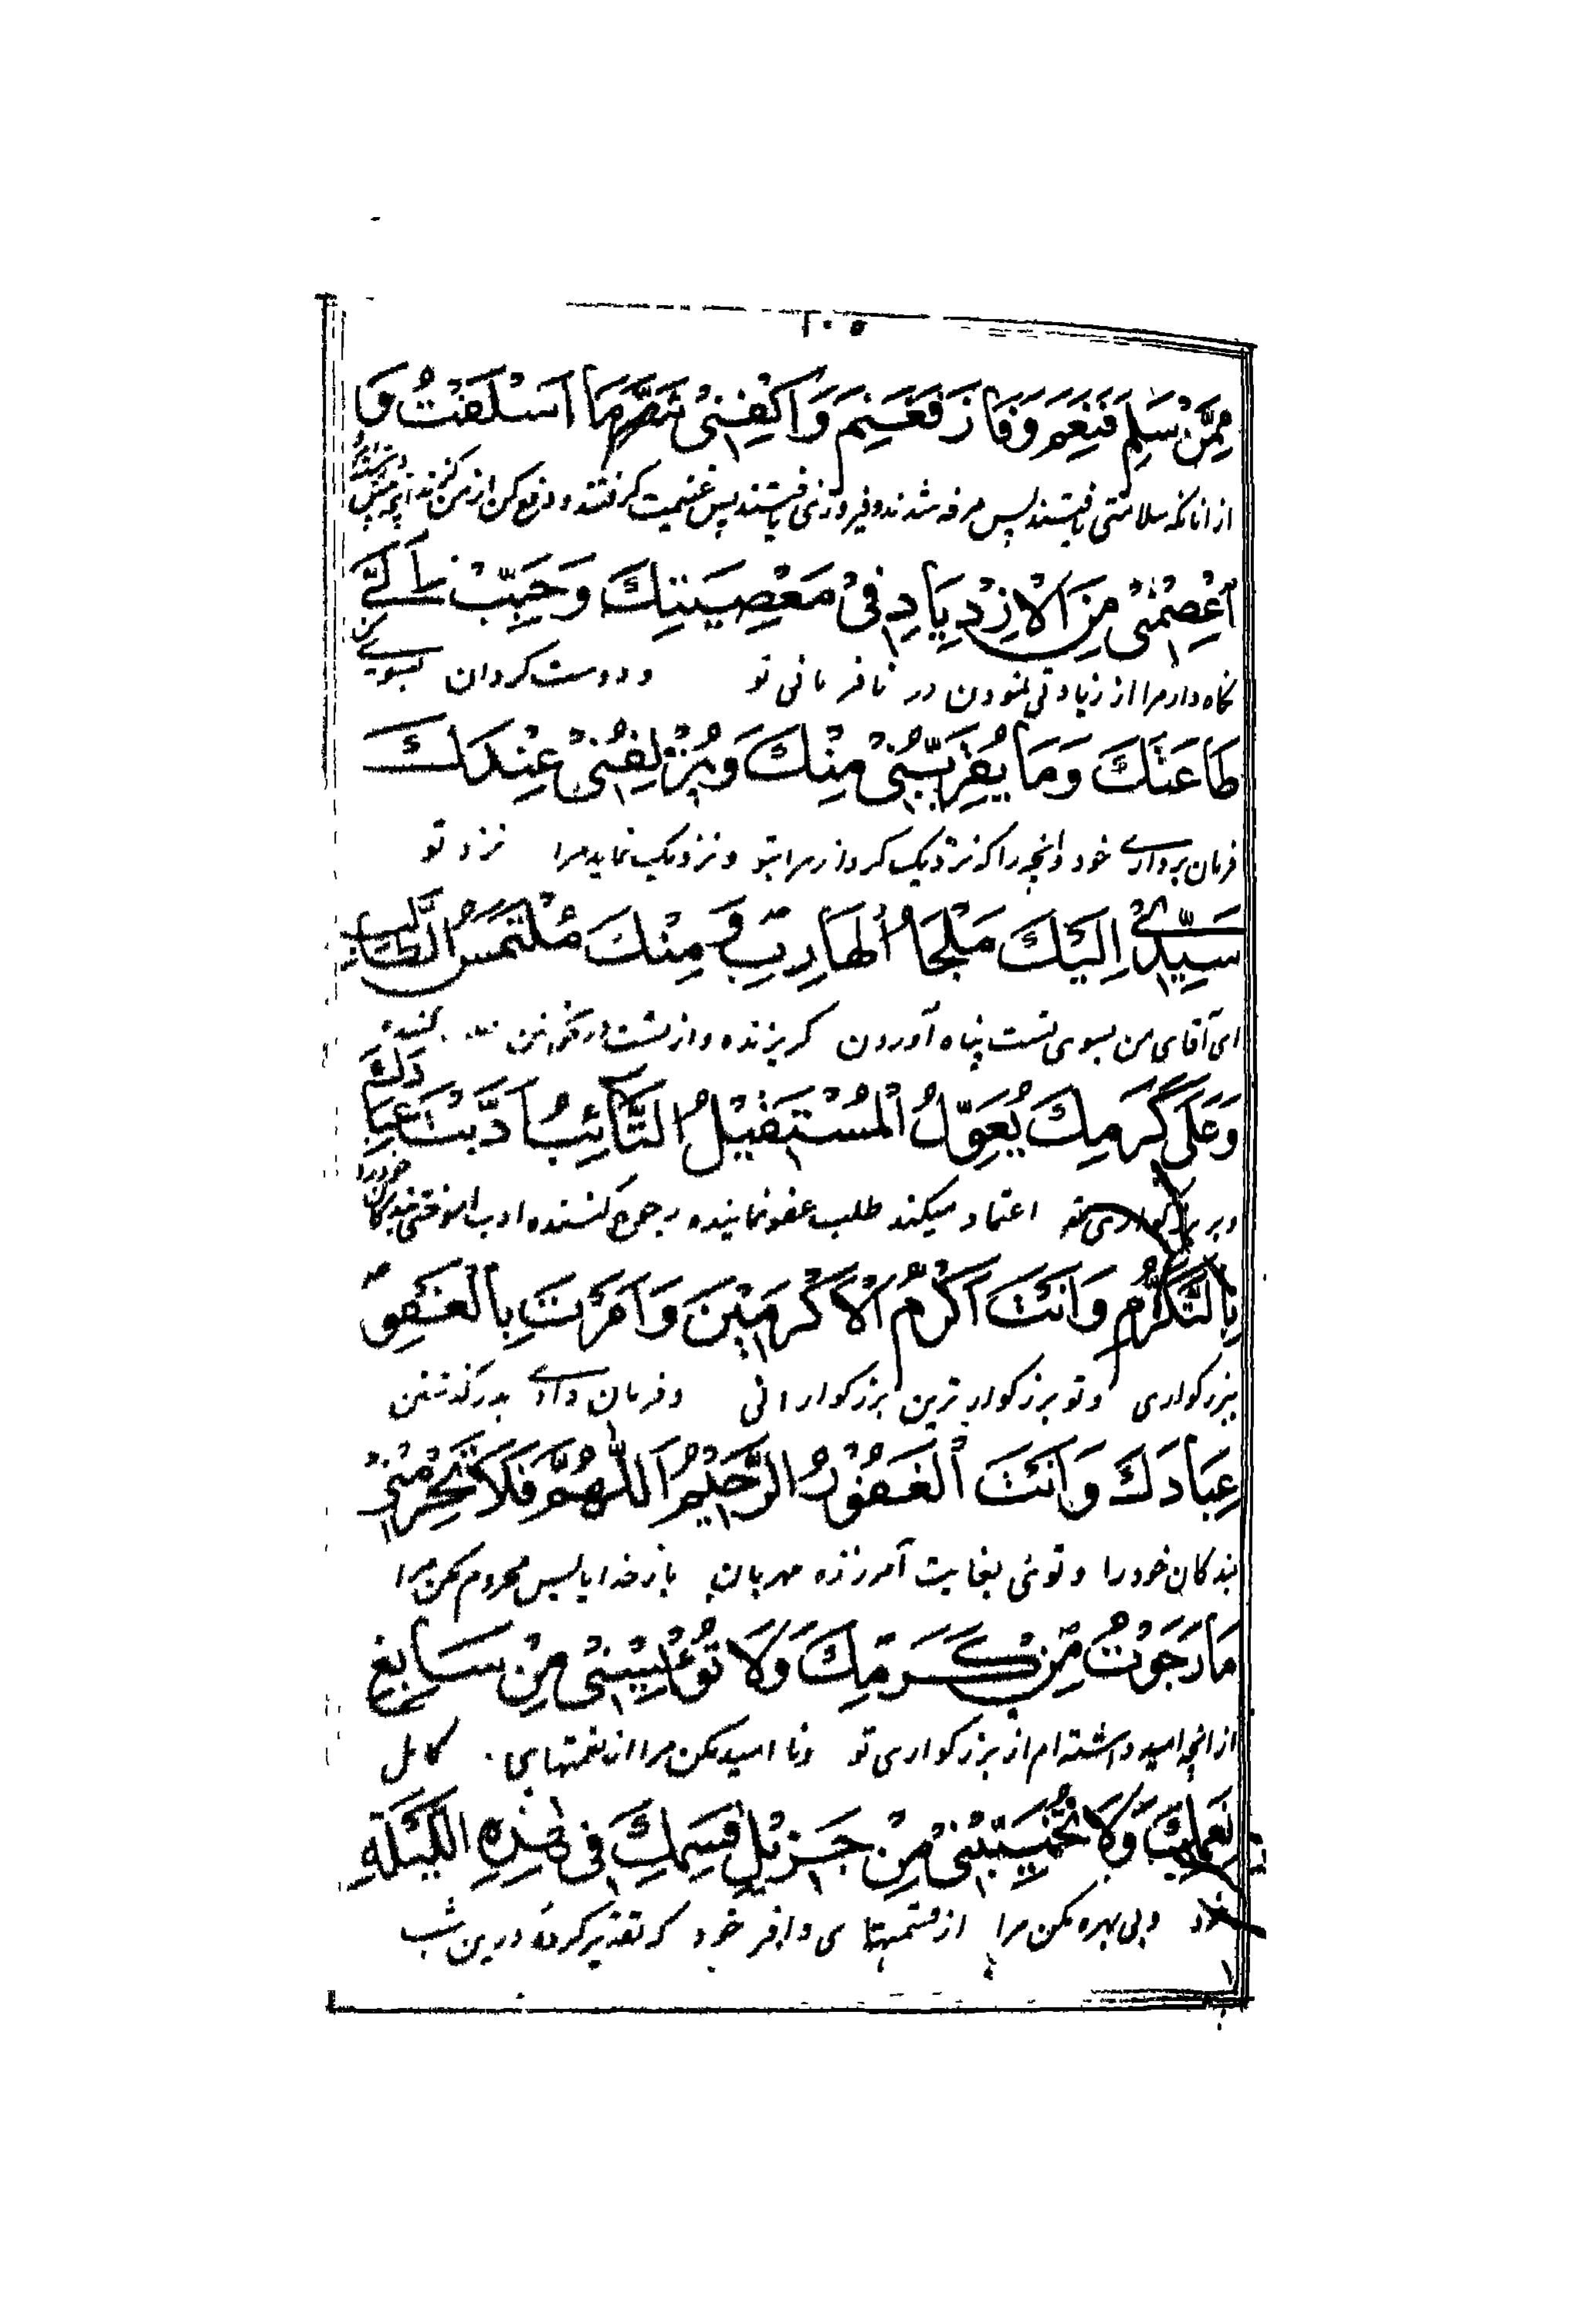 ۲۰۵
مِمَّنْ سَلِمَ فَنَعِمَ وَفَازَ فَغَنِمَ وَاكْفِنِیْ شَرَّ مَا اَسْلَفْتُ وَ
از انانکه سلامتی یافتند پس مرفه شدند و فیروزی یافتند پس غنیمت گرفتند و دفع کن از من گزند انچه پیش
اعْصِمْنِیْ مِنَ الْاِزْدِیَادِ فِیْ مَعْصِیَتِكَ وَحَبِّبْ اِلَیَّ
نگاه دار مرا از زیادتی نمودن در نافرمانی تو و دوست گردان بسوی من
طَاعَتَكَ وَمَا یُقَرِّبُنِیْ مِنْكَ وَیُزْلِفُنِیْ عِنْدَكَ
فرمان برداری خود و انچه را که نزدیک گرداند مرا بتو و نزدیک نماید مرا نزد تو
سَیِّدِیْ اِلَیْكَ مَلْجَأُ الْهَارِبِ وَ مِنْكَ مُلْتَمَسُ الطَّالِبِ
ای آقای من بسوی تست پناه آوردن گریزنده و از تست
وَعَلٰی كَرَمِكَ یُعَوِّلُ الْمُسْتَقِیْلُ التَّائِبُ اَدَّبْتَ عِبَادَكَ
و بر بزرگواری تو اعتماد میکند طلب عفو نماینده رجوع کننده ادب اموختی بندگان خود را
بِالتَّكَرُّمِ وَاَنْتَ اَكْرَمُ الْاَكْرَمِیْنَ وَاَمَرْتَ بِالْعَفْوِ
ببزرگواری و تو بزرگوار ترین بزرگوارانی و فرمان دادی بدرگذشتن
عِبَادَكَ وَاَنْتَ الْغَفُوْرُ الرَّحِیْمُ اَللّٰهُمَّ فَلَا تَحْرِمْنِیْ
بندگان خود را و توئی بغایت آمرزنده مهربان بار خدایا پس محروم مکن مرا
مَا رَجَوْتُ مِنْ كَرَمِكَ وَلَا تُؤْیِسْنِیْ مِنْ سَابِغِ
از انچه امید داشته ام از بزرگواری تو و نا امید مکن مرا از نعمتهای کامل
نِعَمِكَ وَلَا تُخَیِّبْنِیْ مِنْ جَزِیْلِ قِسَمِكَ فِیْ هٰذِهِ اللَّیْلَةِ
خود و بی بهره مکن مرا از قسمتهای وافر خود که تقدیر کرده درین شب